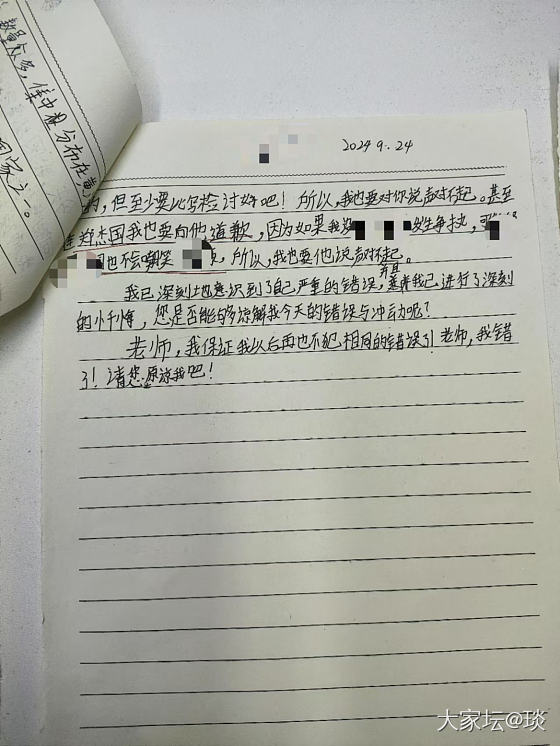 数量众多,集中分布在黄
国家之一。
2024 9.24
的,但至少要比写检讨好吧!所以,我也要对你说声对不起。甚至
连郑杰国我也要向他道歉,因为如果我没 发生争执,
也不会嘲笑 ,所以,我也要他说声对不起。
我已深刻地意识到了自己严重的错误,并且我已进行了深刻
的忏悔,您是否能够谅解我今天的错误与冲动呢?
老师,我保证我以后再也不犯相同的错误了!老师,我错
了!请您原谅我吧!
大家坛@琰